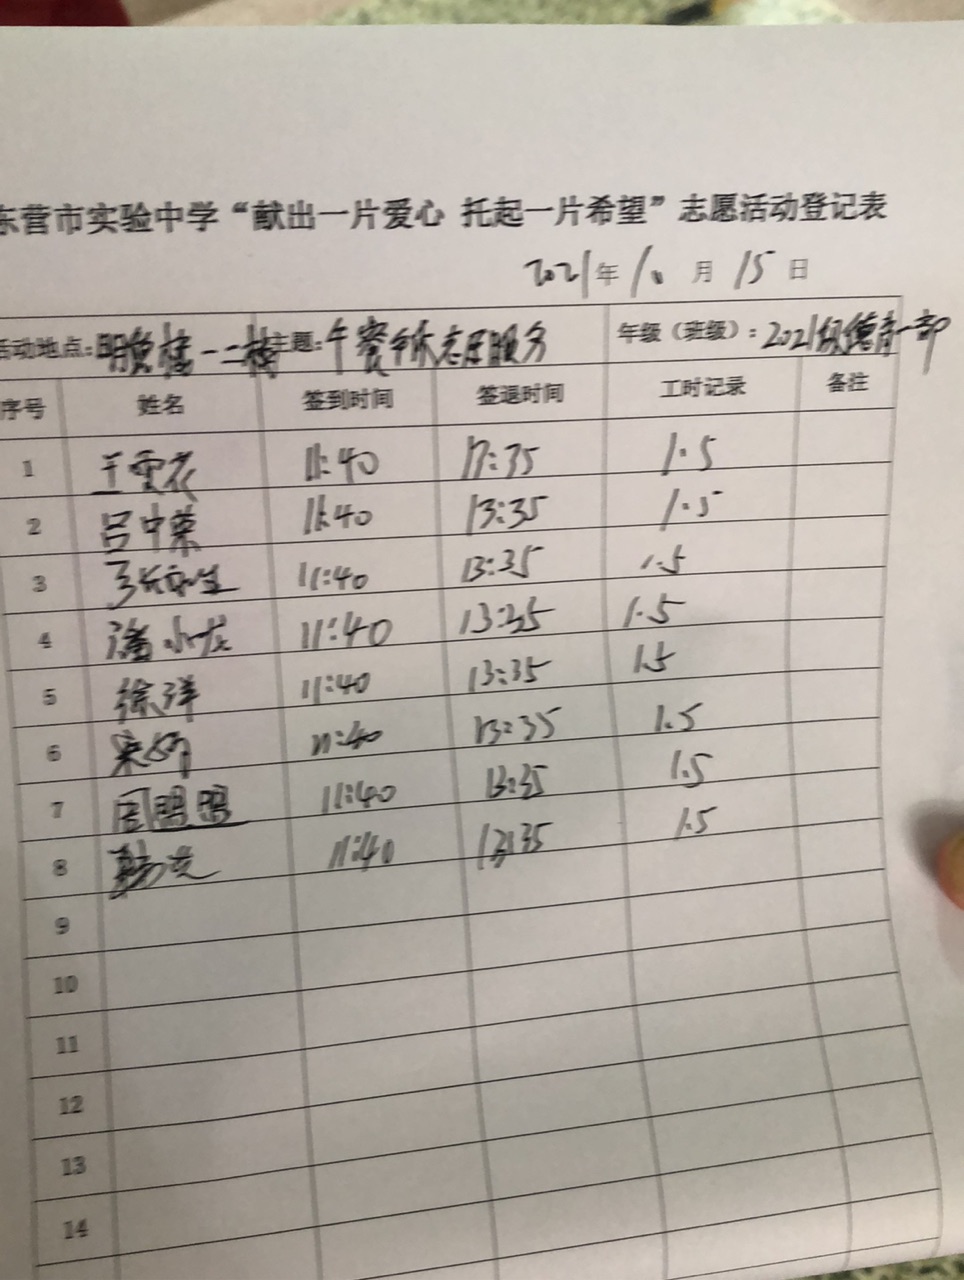 东营市实验中学“献出一片爱心 托起一片希望”志愿活动登记表
2021年10月15日
活动地点:明德楼一二楼 主题:午餐午休志愿服务 年级(班级):2021级德育一部
序号 姓名 签到时间 签退时间 工时记录 备注
1 王雪花 11:40 17:35 1.5
2 吕中荣 11:40 13:35 1.5
3 11:40 13:35 1.5
4 潘小龙 11:40 13:35 1.5
5 徐洋 11:40 13:35 1.5
6 宋娇 11:40 13:35 1.5
7 周盟盟 11:40 13:35 1.5
8 11:40 13:35 1.5
9
10
11
12
13
14